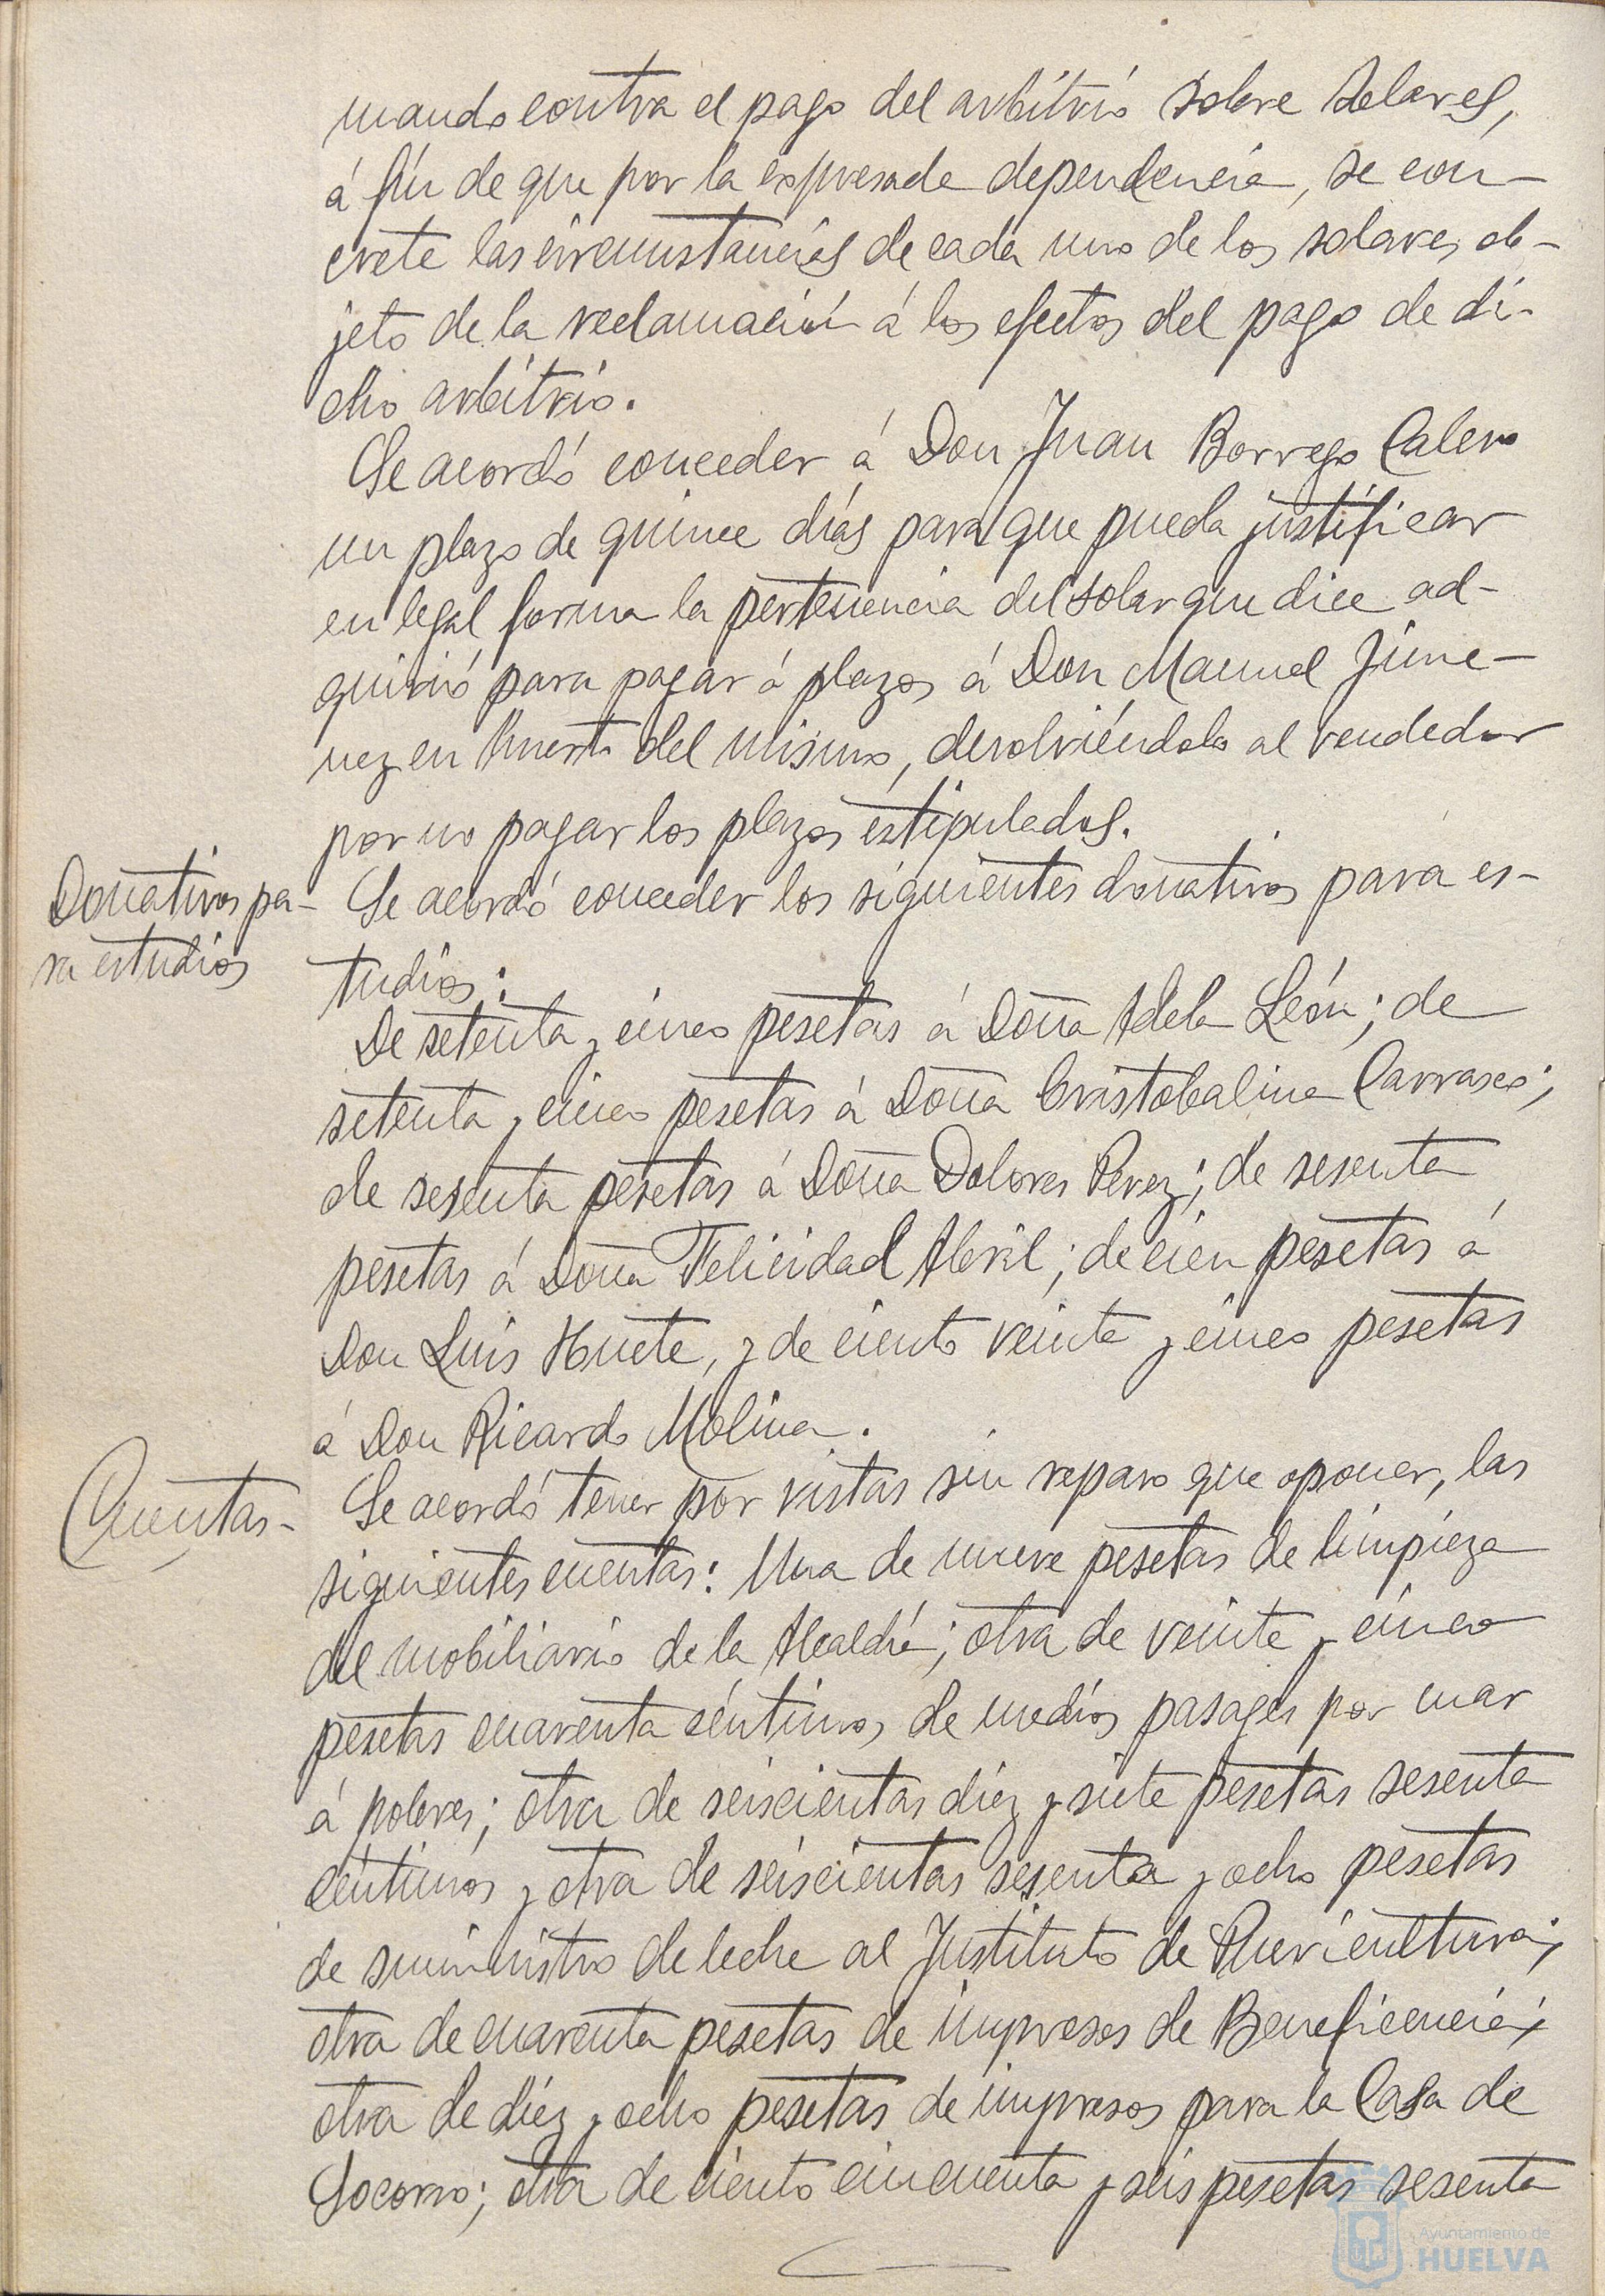 mando contra el pago del arbitrio sobre solares,
á fin de que por la expresada dependencia, se con-
crete las circunstancias de cada uno de los solares ob-
jeto de la reclamación á los efectos del pago de di-
cho arbitrio.
Se acordó conceder á Don Juan Borrego Calero
un plazo de quince días para que pueda justificar
en legal forma la pertenencia del solar que dice ad-
quirió para pagar á plazos á Don Manuel Jime-
nez en huerta del mismo, devolviéndolo al vendedor
por no pagar los plazos estipulados.
Donativos pa-
ra estudios
Se acordó conceder los siguientes donativos para es-
tudios:
De setenta y cinco pesetas á Doña Adela León; de
setenta y cinco pesetas á Doña Cristobalina Carrasco;
de sesenta pesetas á Doña Dolores Perez; de sesenta
pesetas á Doña Felicidad Abril; de cien pesetas á
Don Luis Huete, y de ciento veinte y cinco pesetas
á Don Ricardo Molina.
Cuentas-
Se acordó tener por vistas sin reparo que oponer, las
siguientes cuentas: Una de nueve pesetas de limpieza
del mobiliario de la Alcaldía; otra de veinte y cinco
pesetas cuarenta céntimos de medios pasages por mar
á pobres; otra de seiscientas diez y siete pesetas sesenta
céntimos y otra de seiscientas sesenta y ocho pesetas
de suministro de leche al Instituto de Puericultura;
otra de cuarenta pesetas de impresos de Beneficencia;
otra de diez y ocho pesetas de impresos para la Casa de
Socorro; otra de ciento cincuenta y seis pesetas sesenta
Ayuntamiento de
HUELVA